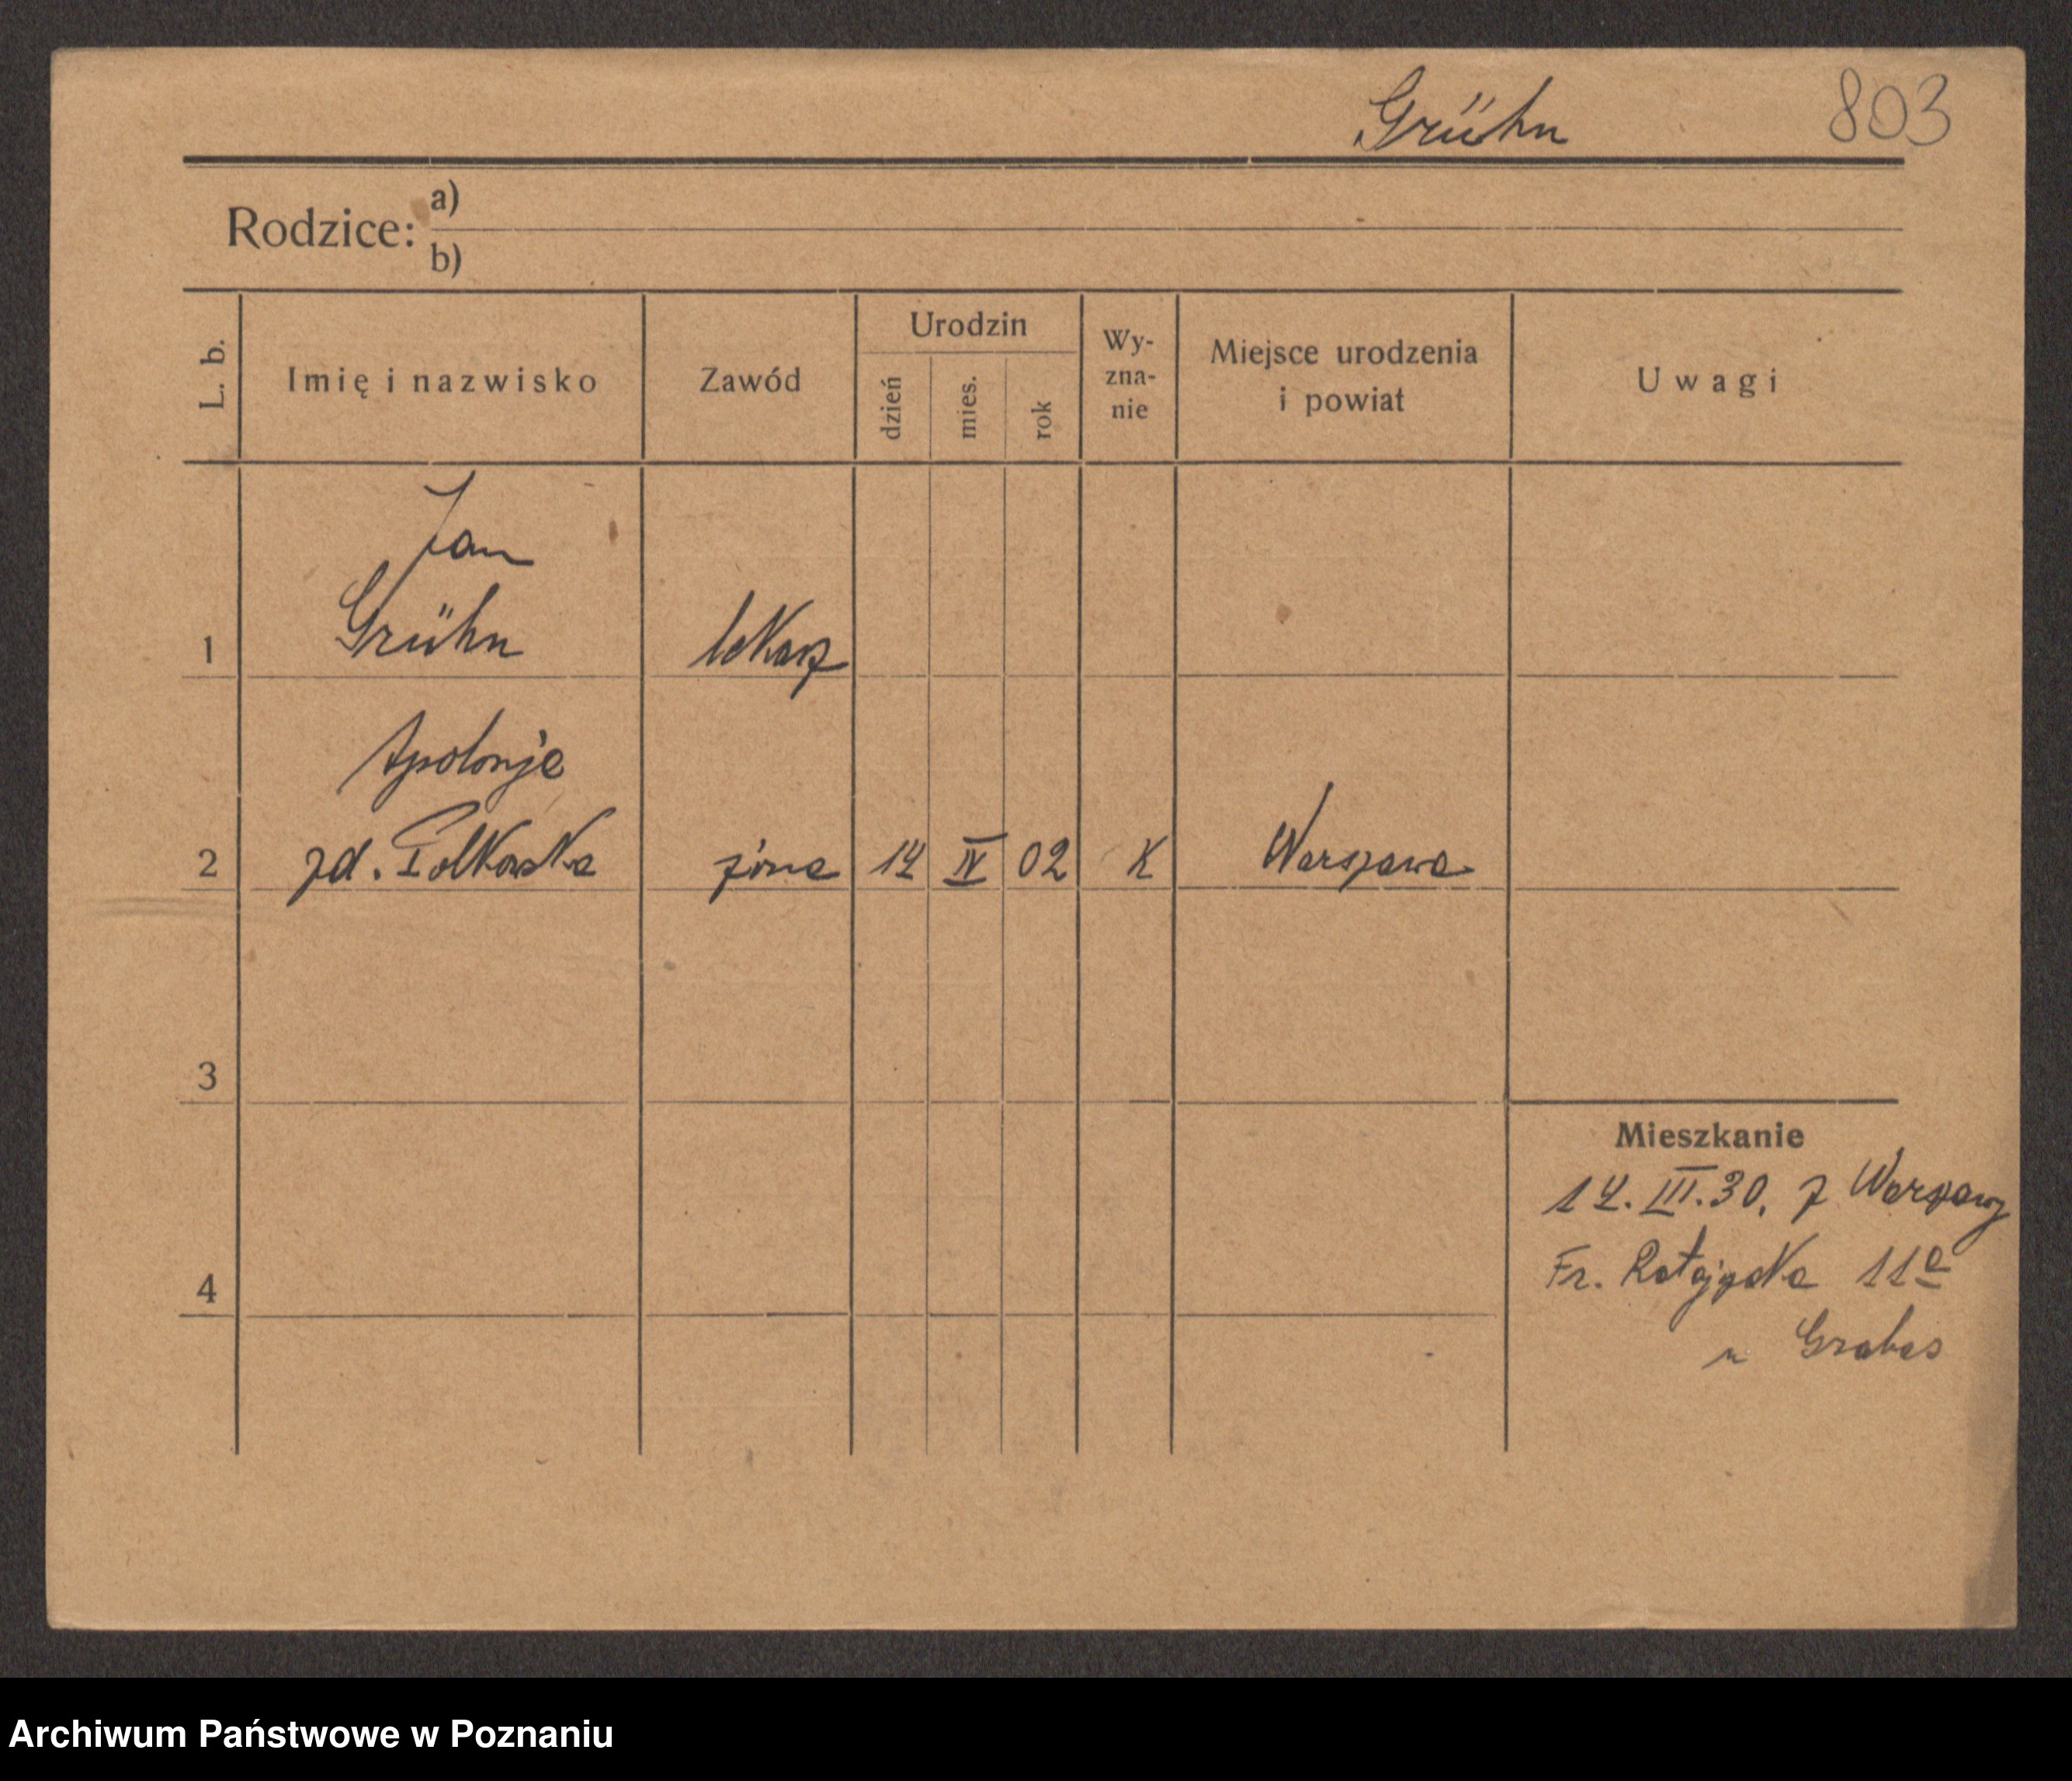 Grühn 803
Rodzice: a)
b)
L. b. Imię i nazwisko Zawód Urodzin dzień mies. rok Wy-zna-nie Miejsce urodzenia i powiat Uwagi
Jan
1 Grühn lekarz
Apolonja
2 zd. żona 14 IV 02 K Warszawa
3
Mieszkanie
14. III. 30. z Warszawy
4 Fr. Ratajczaka 11a
u Grabas
Archiwum Państwowe w Poznaniu